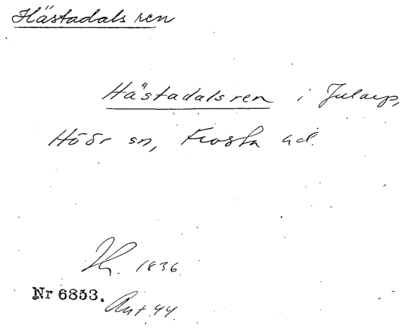 Hästadalsren
Hästadalsren i Jularp,
Höör sn, Frosta hd.
1836
Nr 6853.
Ant. 44